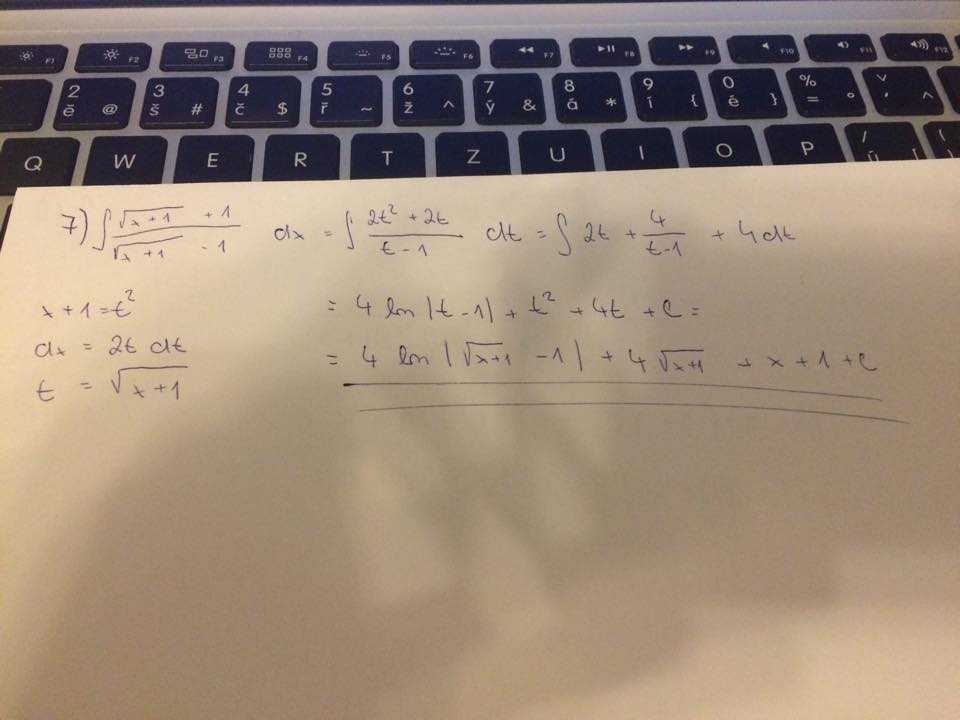 F1 F2 F3 F4 F5 F6 F7 F8 F9 F10 F11 F12
2 ě @ 3 š # 4 č $ 5 ř ~ 6 ž ^ 7 ý & 8 á * 9 í { 0 é } % = ° ˇ ' ^
Q W E R T Z U I O P / ú [ (
7) ∫ (√(x+1) + 1)/(√(x+1) - 1) dx = ∫ (2t² + 2t)/(t-1) dt = ∫ 2t + 4/(t-1) + 4 dt
x + 1 = t²
= 4 ln |t - 1| + t² + 4t + C =
dx = 2t dt
= 4 ln |√(x+1) - 1| + 4 √(x+1) + x + 1 + C
t = √(x+1)